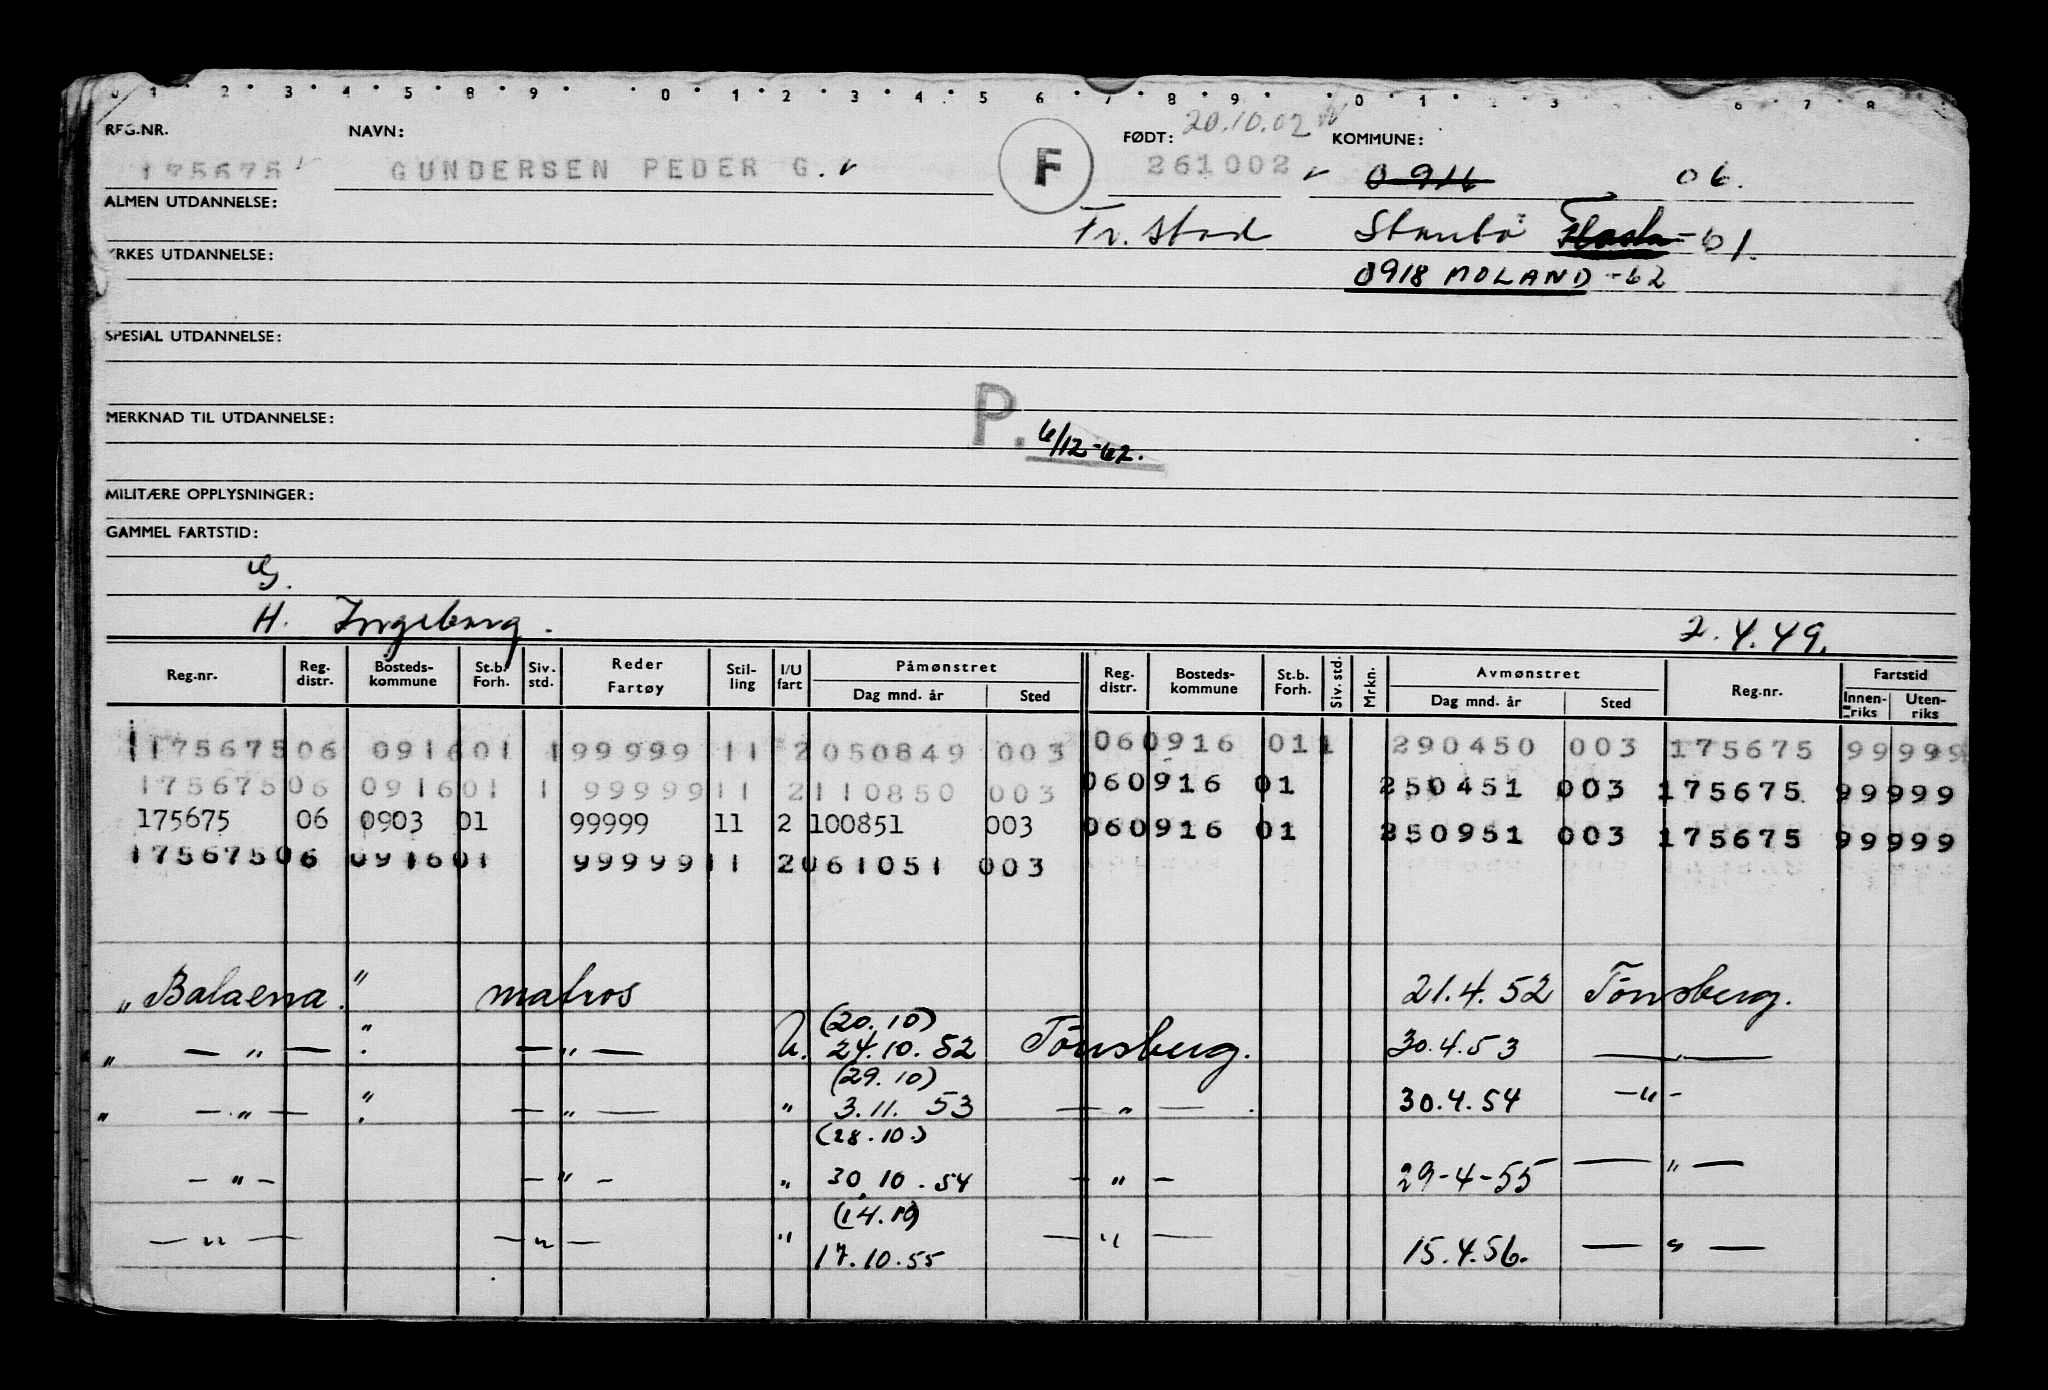 REG.NR. NAVN: FØDT: 20.10.02 KOMMUNE:
175675 GUNDERSEN PEDER G. F 261002 0916 06.
ALMEN UTDANNELSE: Fr. stad Staubö -61.
YRKES UTDANNELSE: 0918 MOLAND -62
SPESIAL UTDANNELSE:
MERKNAD TIL UTDANNELSE: P. 6/12-62.
MILITÆRE OPPLYSNINGER:
GAMMEL FARTSTID:
G.
H. Ingeborg. 2.4.49.
Reg.nr. Reg. distr. Bosteds-kommune St.b. Forh. Siv. std. Reder Fartøy Stil-ling I/U fart Påmønstret Dag mnd. år Sted Reg. distr. Bosteds-kommune St.b. Forh. Siv. std. Mrkn. Avmønstret Dag mnd. år Sted Reg.nr. Fartstid Innen-riks Uten-riks
175675 06 0916 01 1 99999 11 2 050849 003 06 0916 01 1 290450 003 175675 99999
175675 06 0916 01 1 99999 11 2 110850 003 06 0916 01 250451 003 175675 99999
175675 06 0903 01 99999 11 2 100851 003 06 0916 01 250951 003 175675 99999
175675 06 0916 01 99999 11 2 061051 003
"Balaena." matros 21.4.52 Tönsberg.
(20.10)
" — " — ". — " — U. 24.10.52 Tönsberg. 30.4.53 — " —
(29.10)
" — " — ". — " — " 3.11.53 — " — . 30.4.54 — " —
(28.10.)
— " — — " — " 30.10.54 — " — 29-4-55 — " —
(14.10)
— " — — " — " 17.10.55 — " — 15.4.56. — " —